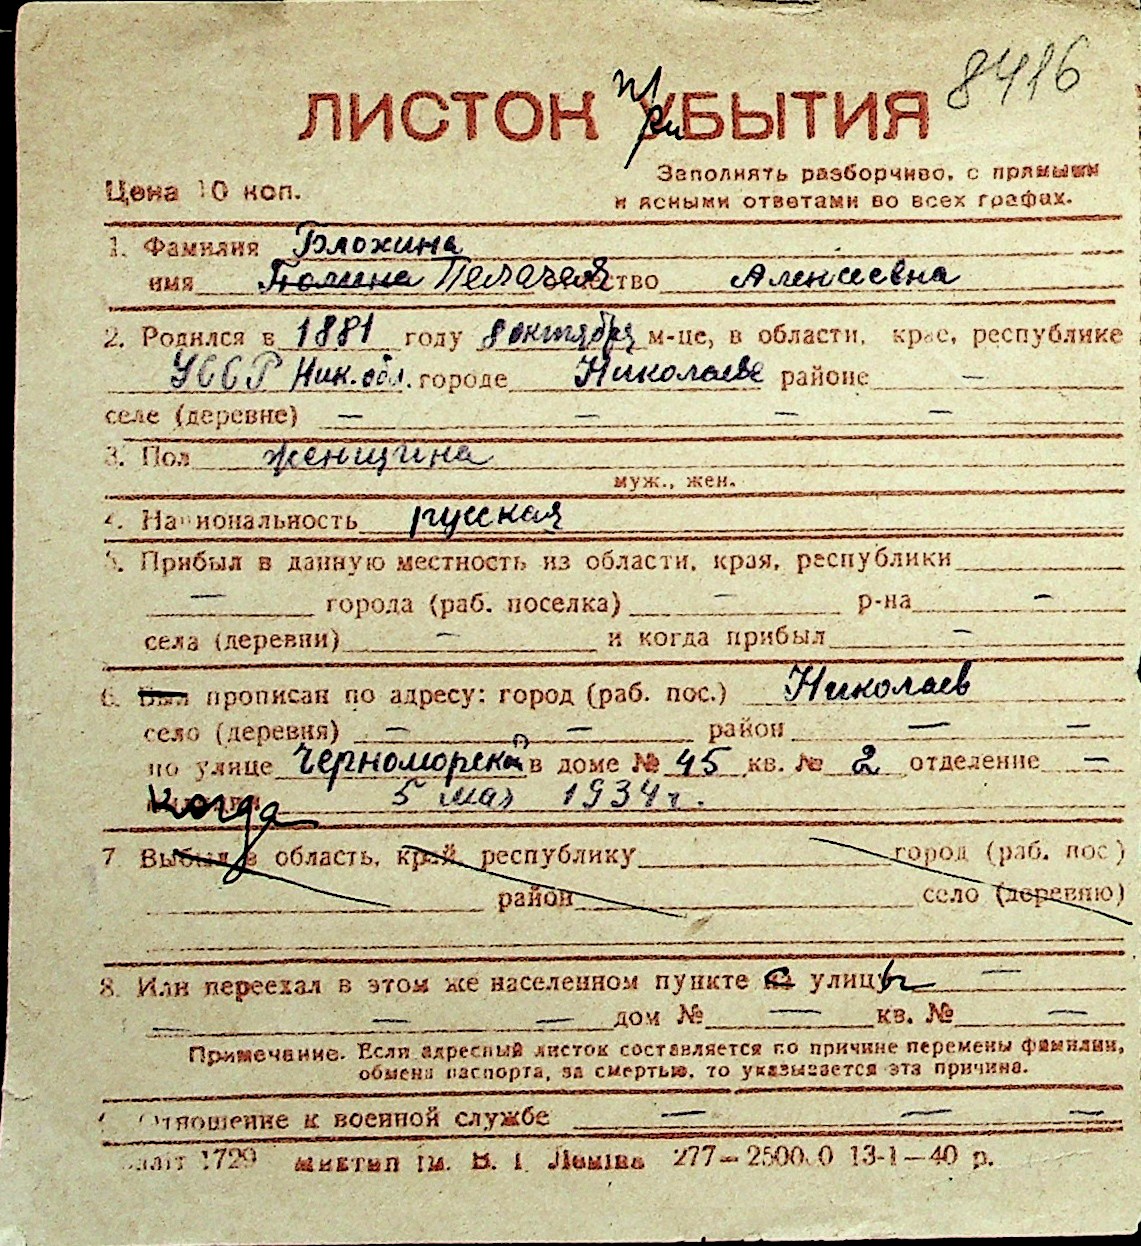 8416
ЛИСТОК ПРИБЫТИЯ
Цена 10 коп.
Заполнять разборчиво, с прямыми
и ясными ответами во всех графах.
1. Фамилия Блохина
имя Полина Пелагея отчество Алексеевна
2. Родился в 1881 году 8 октября м-це, в области, крае, республике
УССР Ник. обл. городе Николаеве районе —
селе (деревне) — — — —
3. Пол женщина
муж., жен.
4. Национальность русская
5. Прибыл в данную местность из области, края, республики
— города (раб. поселка) — р-на —
села (деревни) — и когда прибыл —
6. Был прописан по адресу: город (раб. пос.) Николаев
село (деревня) — — район — —
по улице Черноморской в доме № 45 кв. № 2 отделение —
когда 5 мая 1934 г.
7 Выбыл в область, край, республику город (раб. пос)
район село (деревню)
8. Или переехал в этом же населенном пункте с улицы —
— — — дом № — кв. № —
Примечание. Если адресный листок составляется по причине перемены фамилии,
обмена паспорта, за смертью, то указывается эта причина.
Отношение к военной службе — — —
1729 ім. В. І. Леніна 277—2500.0 13-1—40 р.